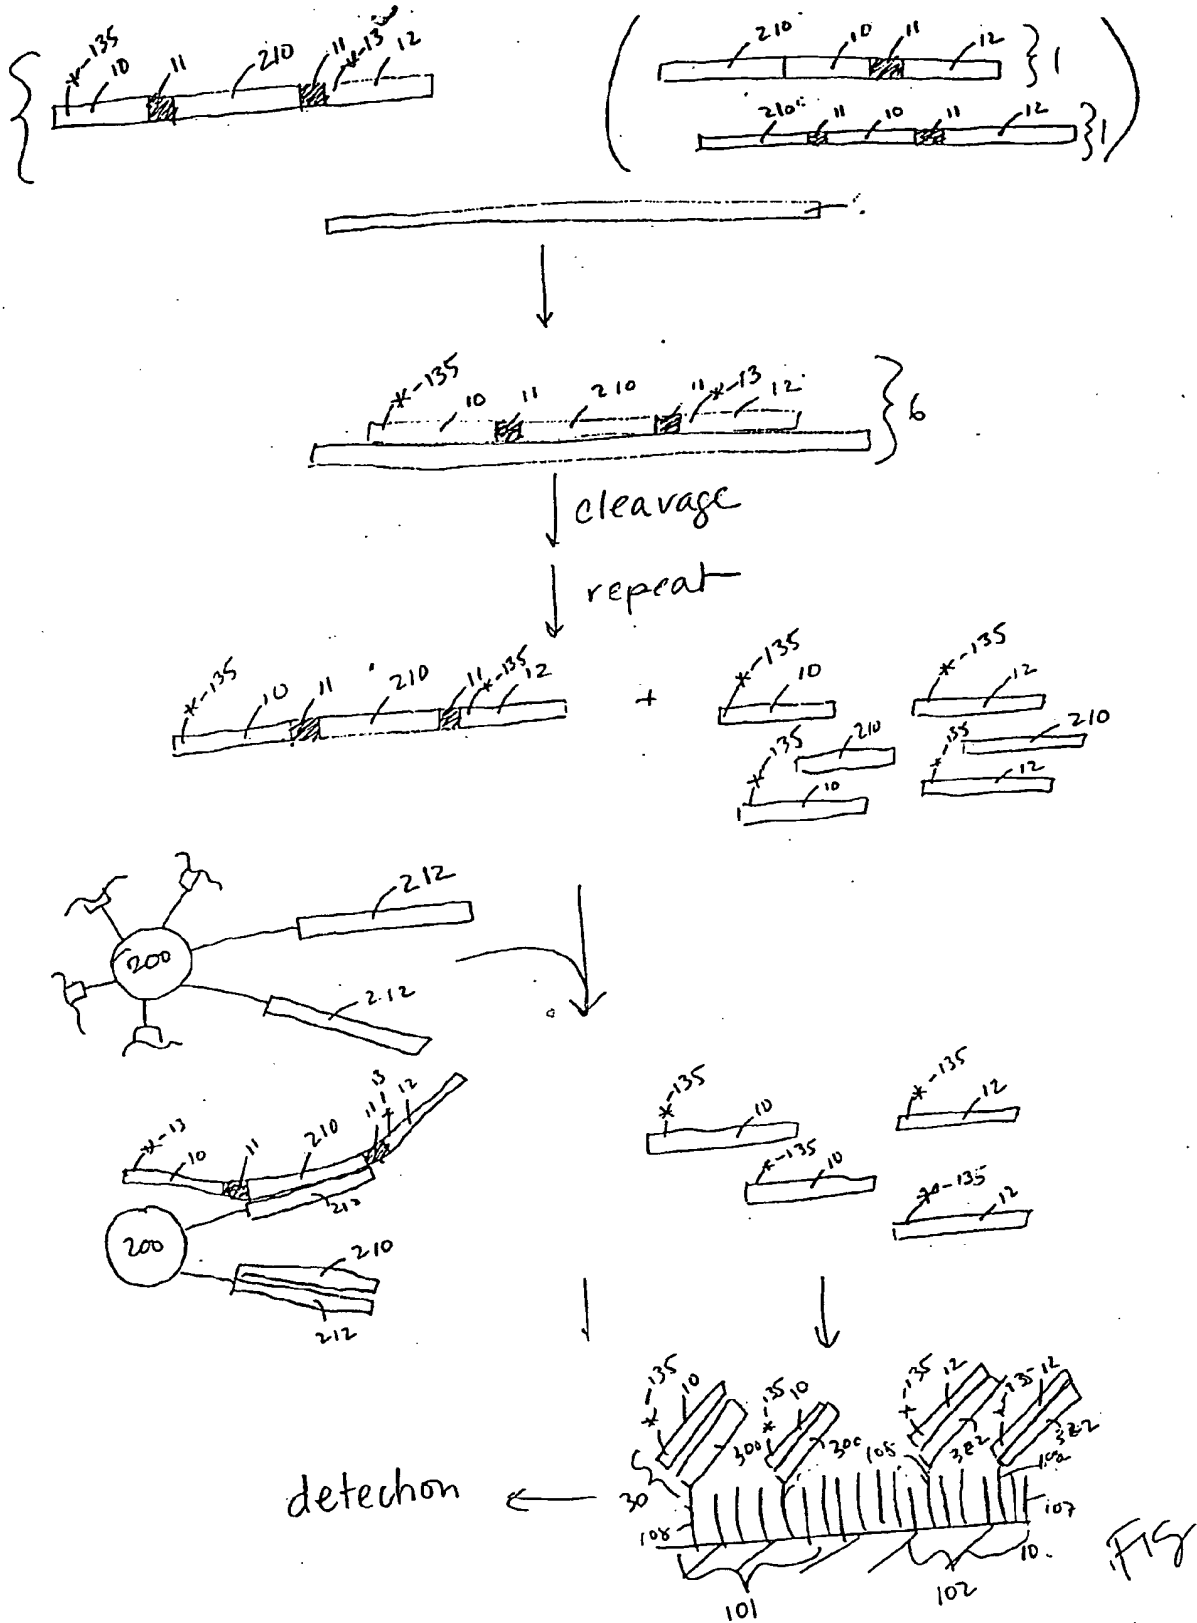 *-135 10 11 210 11 *-13 12
210 10 11 12 1
210 11 10 11 12 1
*-135 10 11 210 11 *-13 12 6
cleavage
repeat
*-135 10 11 210 11 *-135 12 + *-135 10 *-135 12
210 210
*-135 10 *-135 12
200 212
212
*-13 10 11 210 11 13 12
212
200 210
212
*-135 10 *-135 12
*-135 10 *-135 12
*-135 10 *-135 10 *-135 12 *-135 12
300 300 108 322 322
30 109 107
detechon
108 10.
101 102
FIG